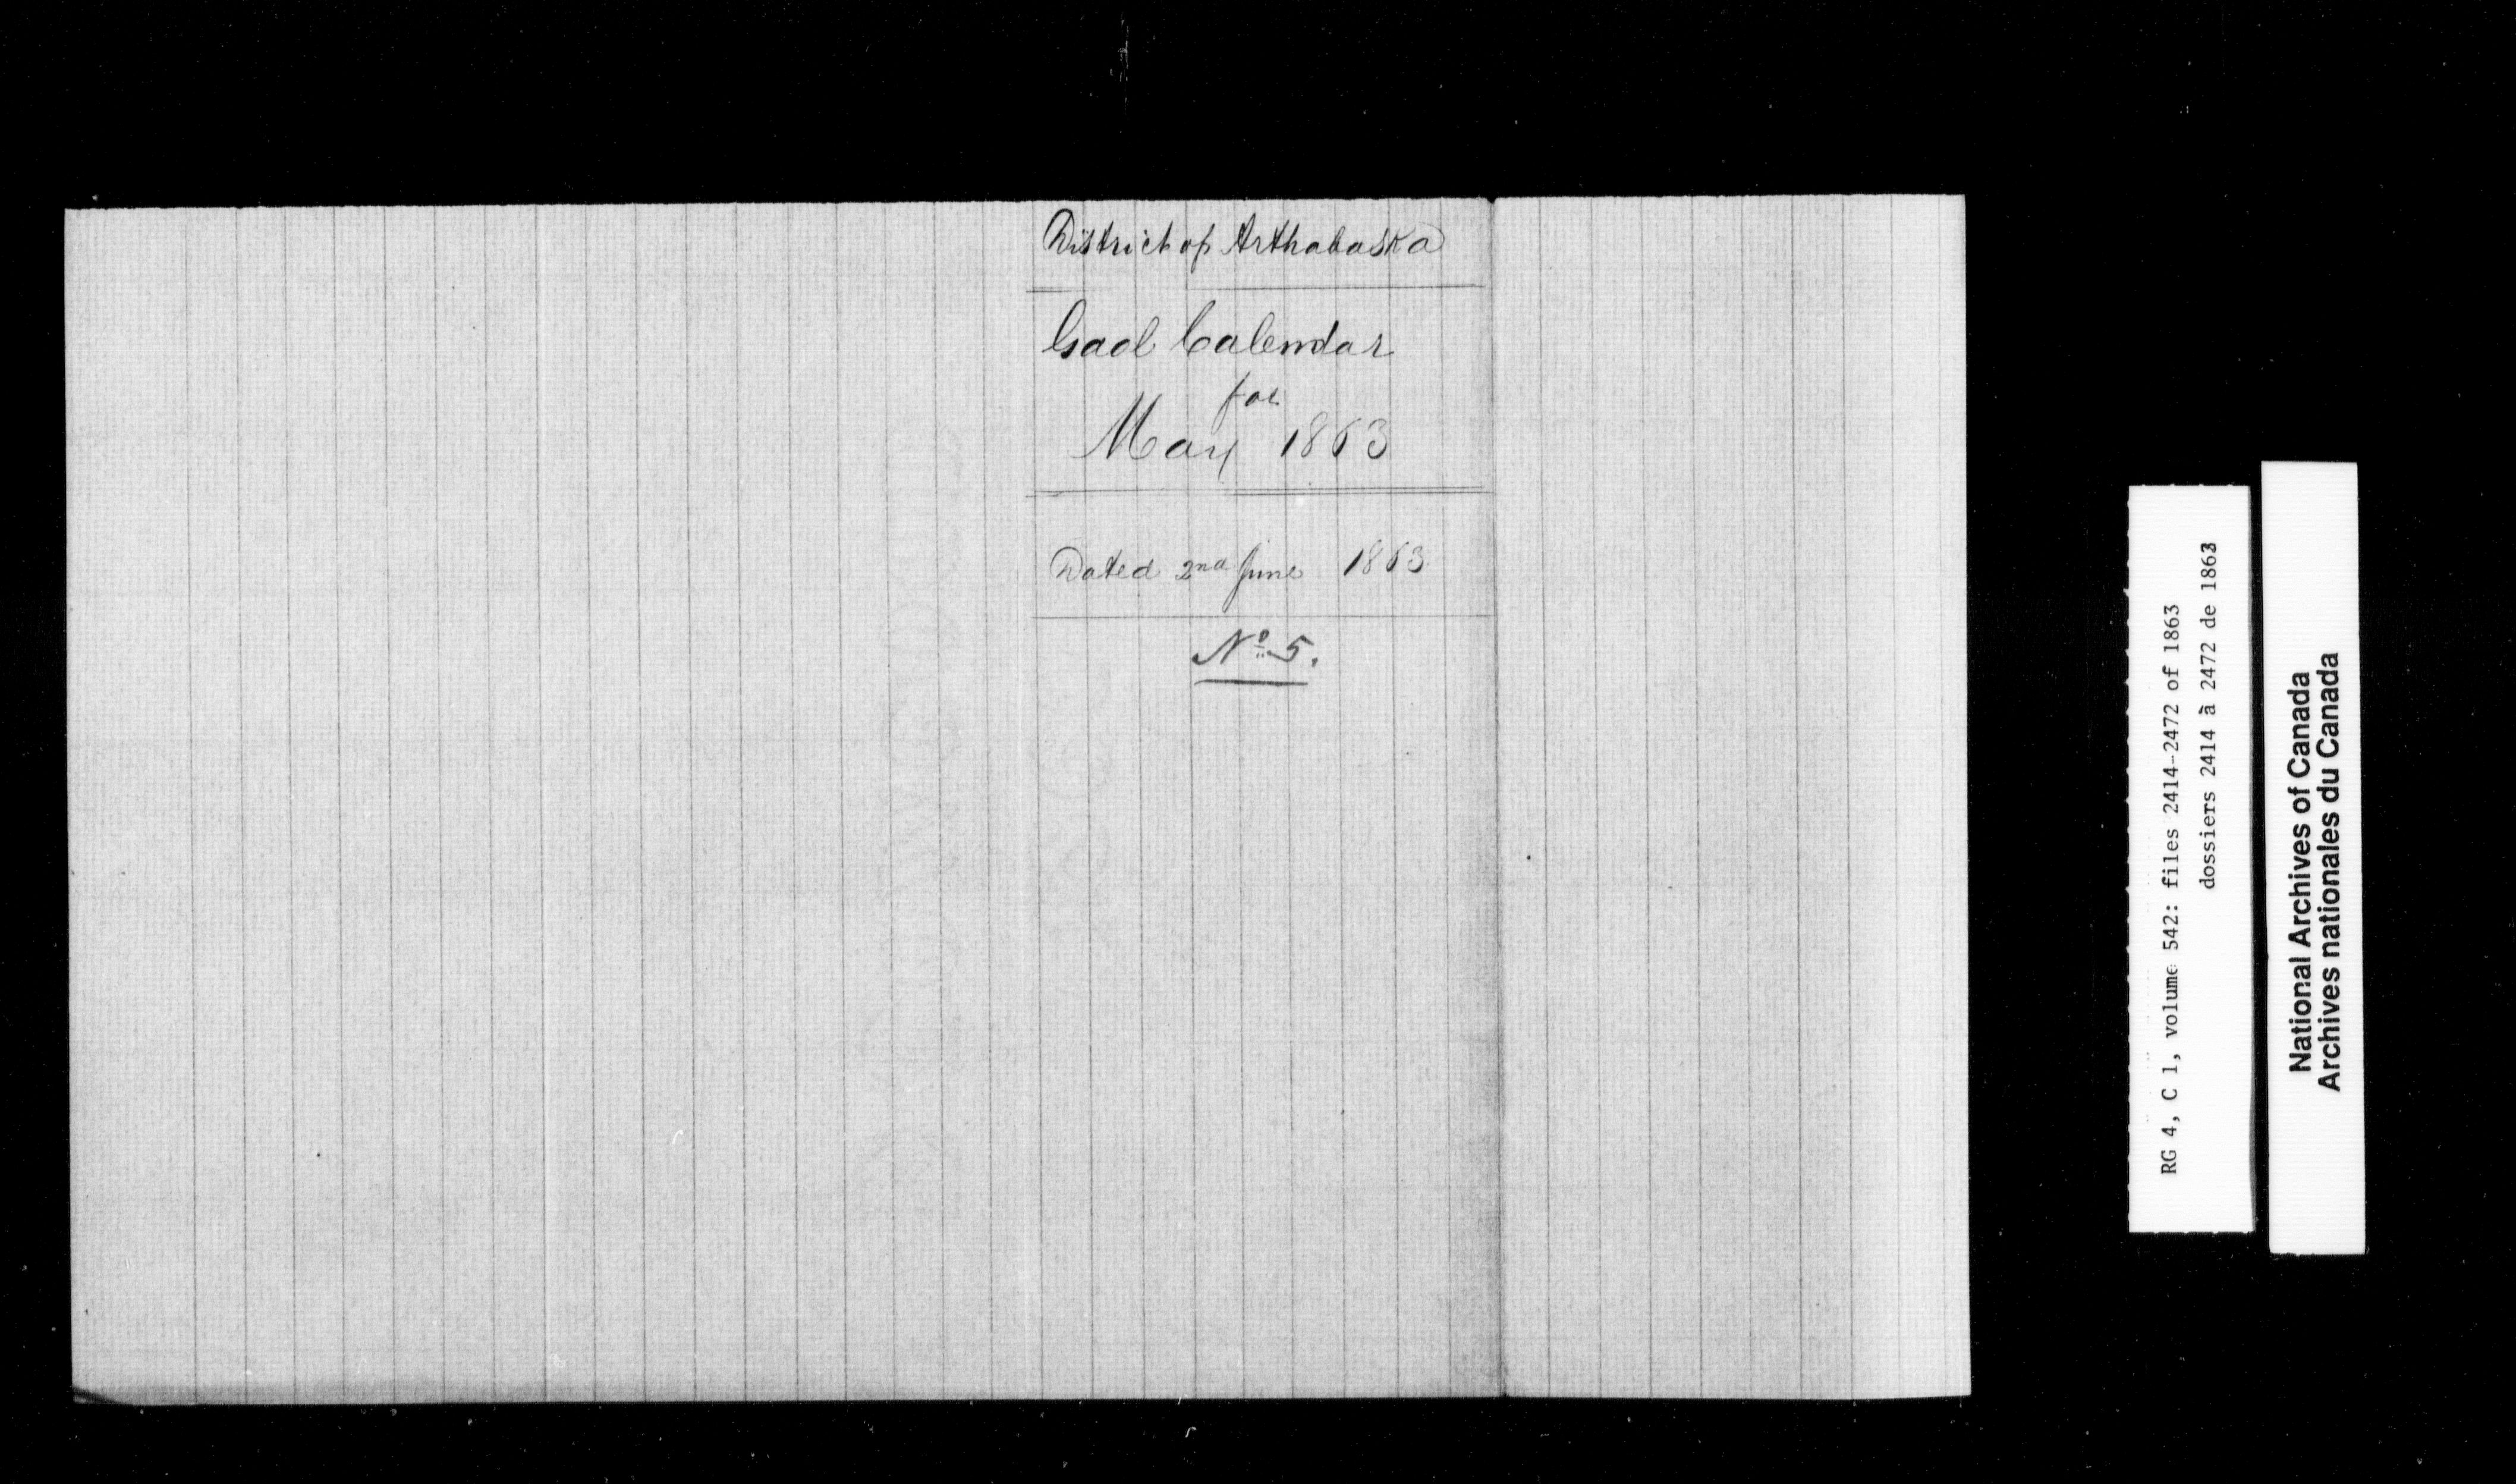 District of Arthabaska
Gaol Calendar
for
May 1863
Dated 2nd June 1863
No 5.
RG 4, C 1, volume 542: files 2414-2472 of 1863
dossiers 2414 à 2472 de 1863
National Archives of Canada
Archives nationales du Canada